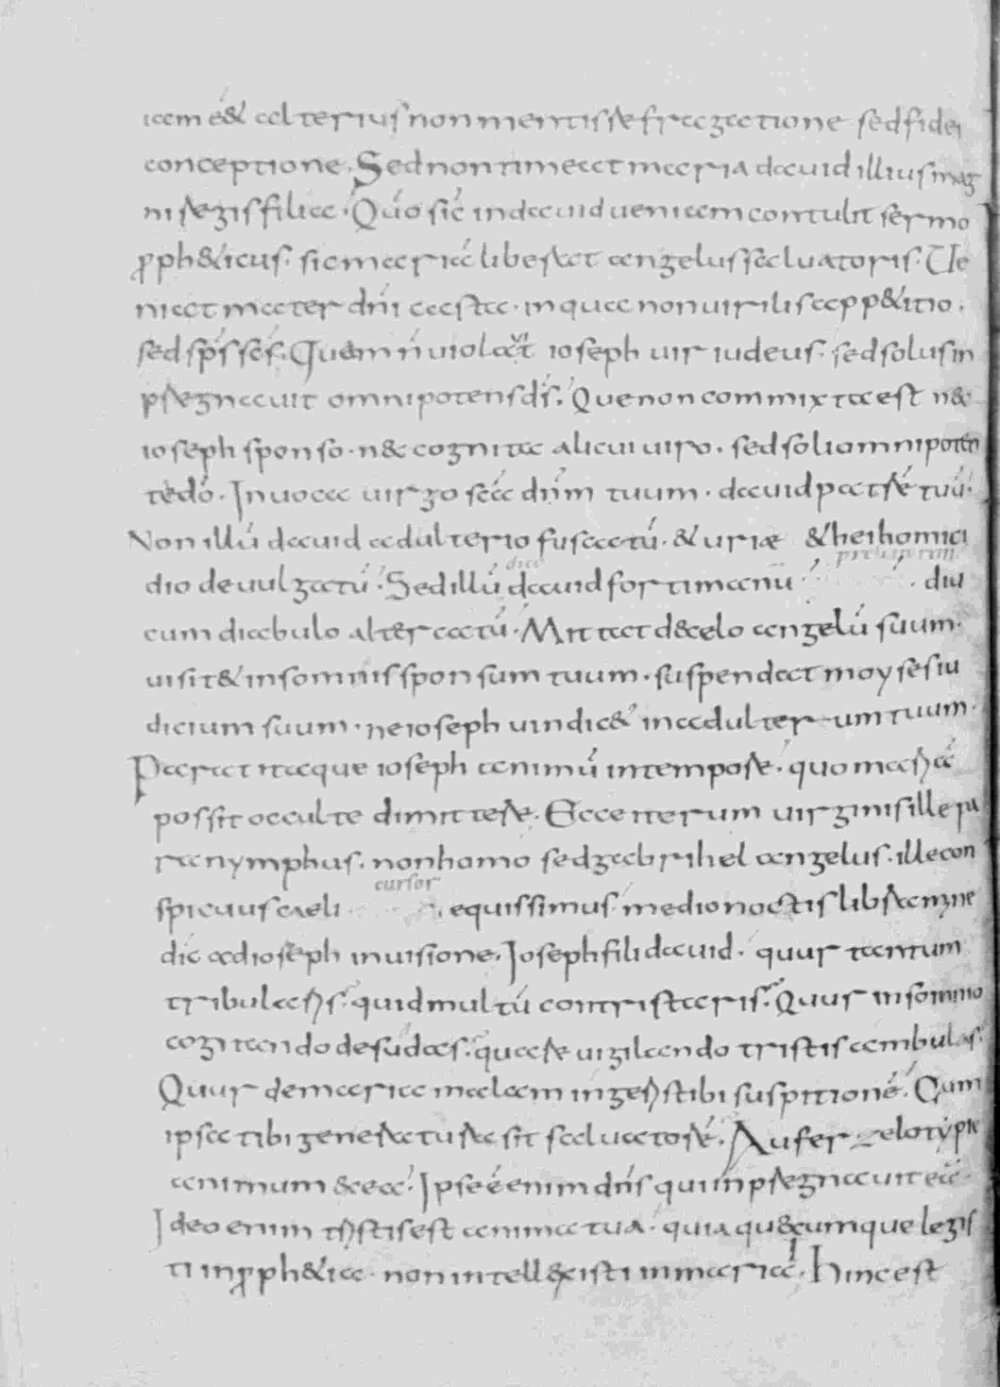 iam é& alterius non mentis sefragatione sed fidei
conceptione. Sed non timeat maria dauid illius mag
ni regis filia. Quo sic in dauid ueniam contulit sermo
proph&icus. sic mariā liberat angelus saluatoris. Ue
niat mater dn̄i casta. in qua non uirilis app&itio.
sed sp̄s sc̄s. Quam n̄ uiolauit ioseph uir iudeus. sed solus in
pregnauit omnipotens ds̄. Que non commixta est n&
ioseph sponso. n& cognita alicui uiro. sed soli omnipoten
te dō. Inuoca uirgo sc̄a dn̄m tuum. dauid patrē tuū.
Non illū dauid adulterio fuscatū. & uriæ &hei homici
dio deuulgatū. Sed illū dico dauid forti manu . diu
cum diabulo altercatū. Mittat d&celo angelū suum.
uisit& in somnis sponsum tuum. suspendat moyses iu
dicium suum. ne ioseph uindic& in adulterium tuum.
Parat itaque ioseph animū in tempore. quo mariā
possit occulte dimittere. Ecce iterum uirginis ille pa
ranymphus. non homo sed gabrihel angelus. ille con
spicuus caeli cursor . equissimus medio noctis libramine
dic ad ioseph in uisione. Ioseph fili dauid. quur tantum
tribularis. quid multū contristaris. Quur in somno
cogitando desudas. quare uigilando tristis ambulas.
Quur de maria malam ingeris tibi suspitionē. Cum
ipsa tibi generatura sit saluatorē. Aufer zelotypie
animum &ea. Ipse ē enim dn̄s qui inpregnauit eā.
Ideo enim tristis est anima tua. quia qu&cumque legis
ti in proph&ia. non intell&isti in mariā. Hinc est